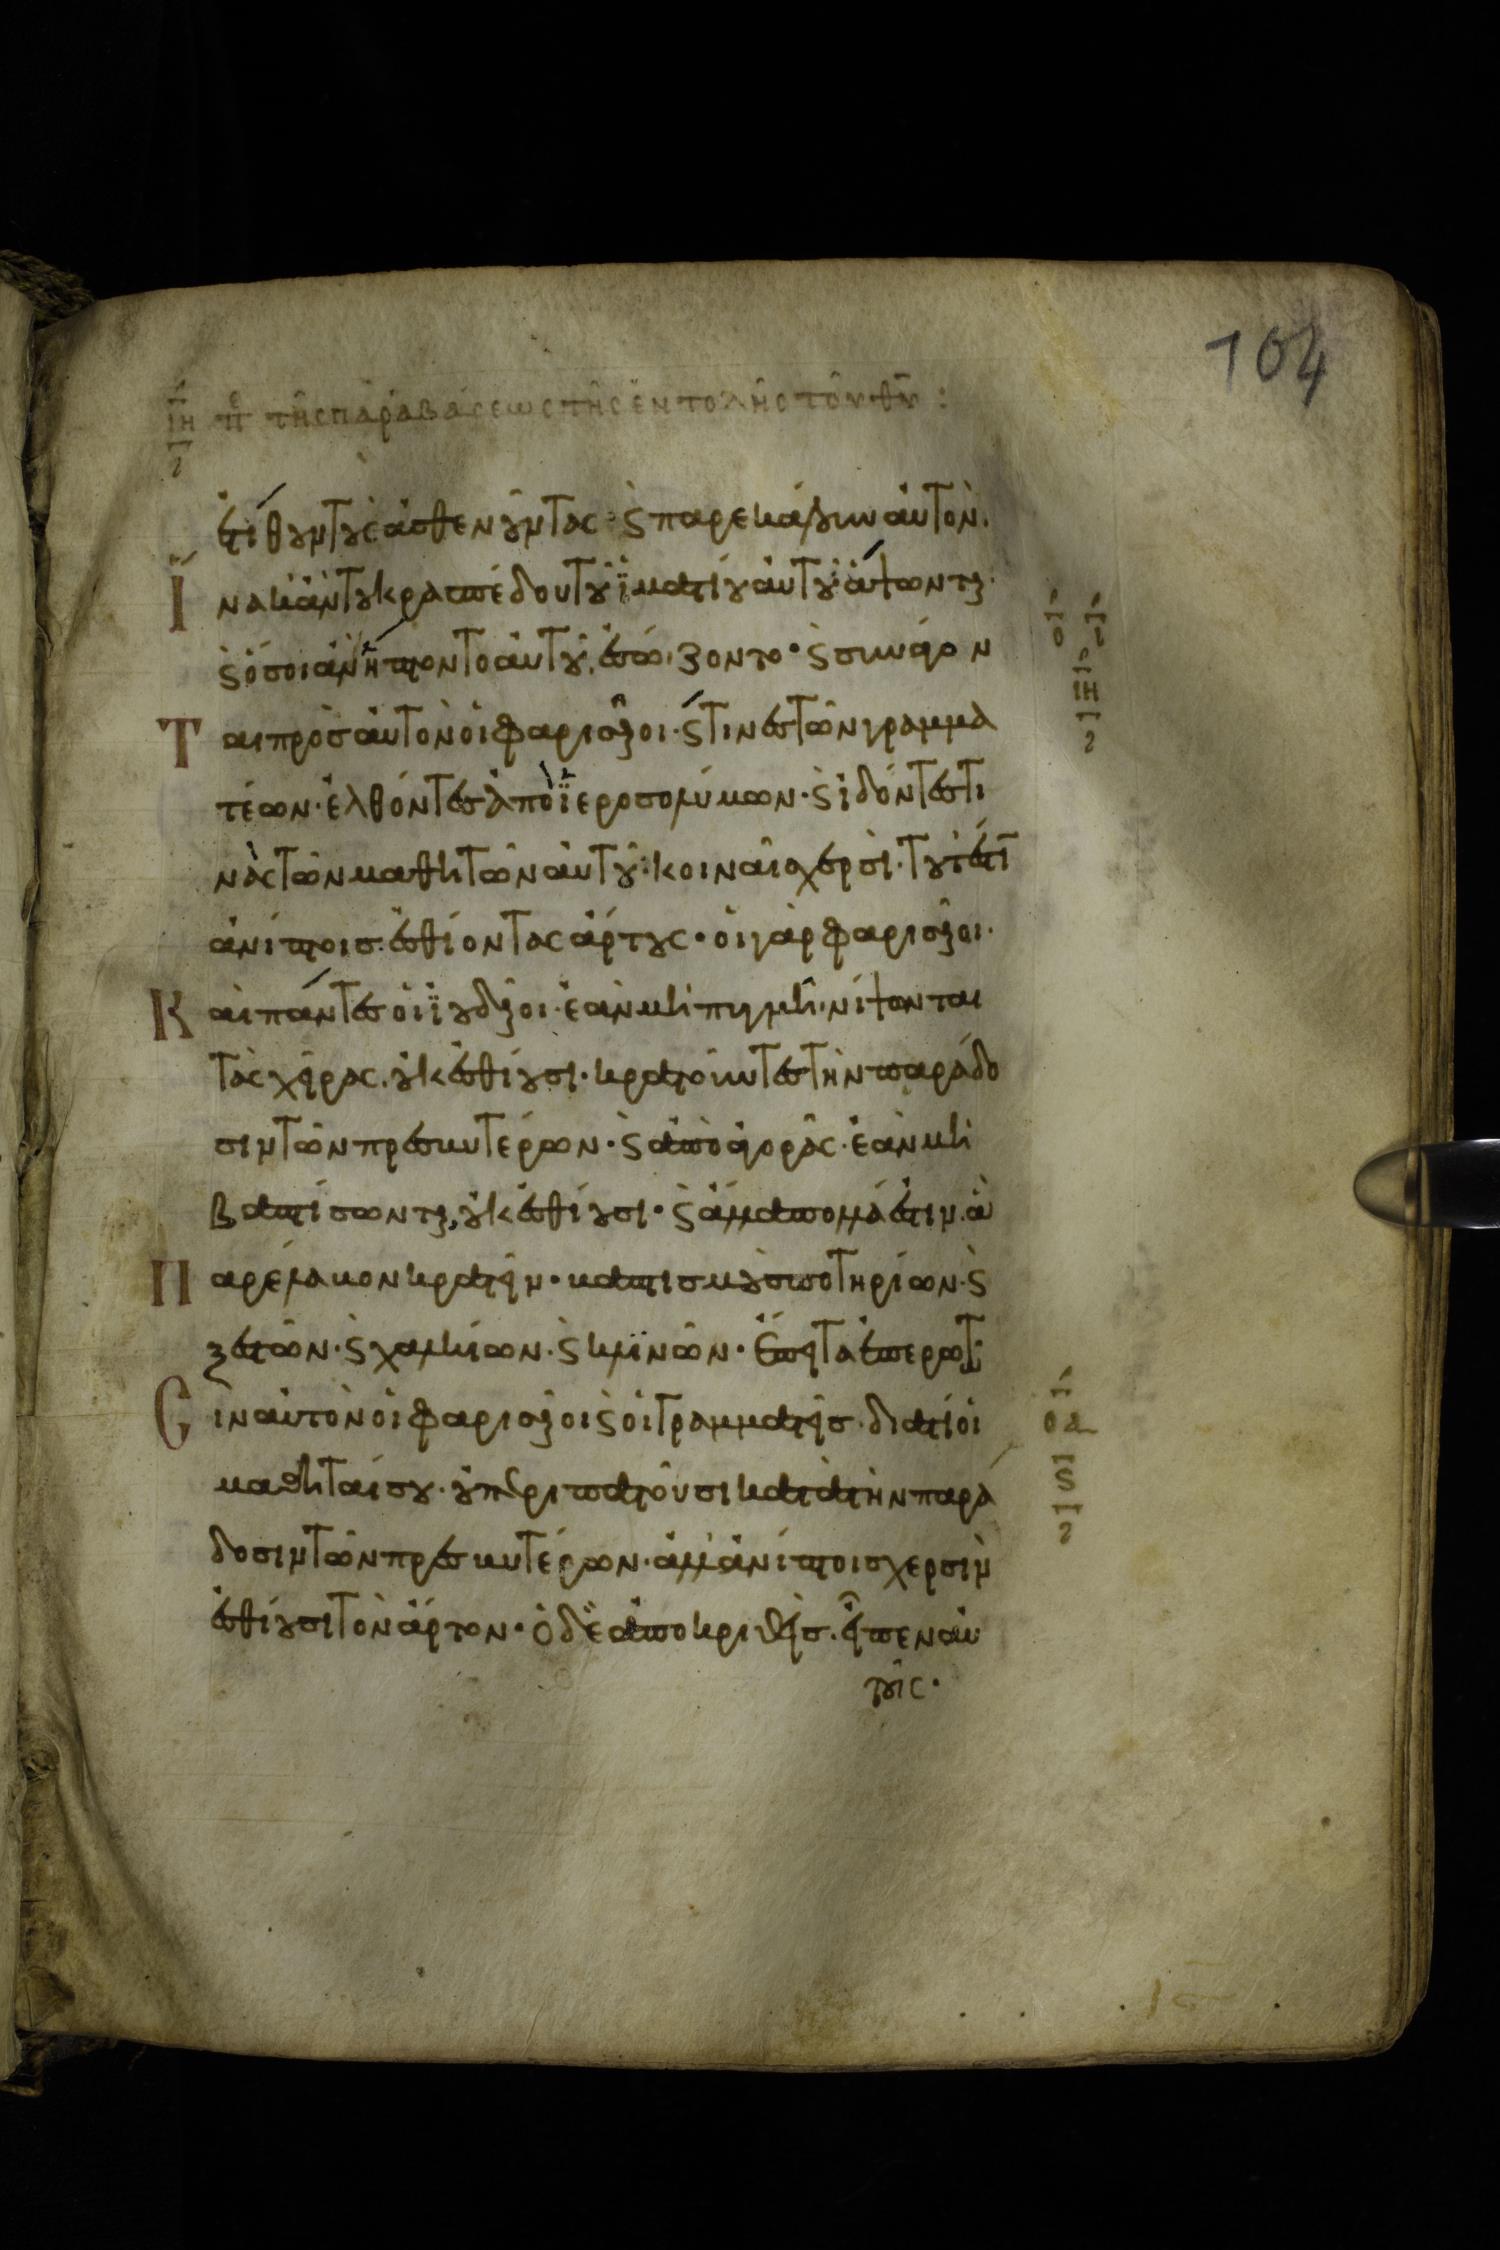 104
ιη πε τῆς παραβάσεως τῆς ἐντολῆς τοῦ θυ :
ἐτίθουν τοὺς ἀσθενοῦντας · ϗ παρεκάλουν αὐτὸν.
ἵνα κἂν τοῦ κρασπέδου τοῦ ἱματίου αὐτοῦ ἅψωνται ·
ϗ ὅσοι ἂν ἥπτοντο αὐτοῦ, ἐσώζοντο · ϗ συνάγον
ται πρὸς αὐτὸν οἱ φαρισαῖοι · ϗ τινὲς τῶν γραμμα
τέων · ἐλθόντες ἀπὸ ἱεροσολύμων · ϗ ἰδόντες τι
νὰς τῶν μαθητῶν αὐτοῦ · κοιναῖς χερσὶ · τουτέστι
ἀνίπτοις ἐσθίοντας ἄρτους · οἱ γὰρ φαρισαῖοι ·
καὶ πάντες οἱ ἰουδαῖοι · ἐὰν μὴ πυγμῆ · νίψονται
τὰς χεῖρας. οὐκ ἐσθίουσι · κρατοῦντες τὴν παράδο
σιν τῶν πρεσβυτέρων · ϗ ἀπὸ ἀγορᾶς · ἐὰν μὴ
βαπτίσωνται, οὐκ ἐσθίουσι · ϗ ἄλλα πολλά ἐστιν. ἃ
παρέλαβον κρατεῖν · βαπτισμοὺς ποτηρίων · ϗ
ξεστῶν · ϗ χαλκίων · ϗ κλινῶν · ἔπειτα ἐπερωτῶ
σιν αὐτὸν οἱ φαρισαῖοι ϗ οἱ γραμματεῖς · διατί οἱ
μαθηταί σου · οὐ περιπατοῦσι κατὰ τὴν παρά
δοσιν τῶν πρεσβυτέρων · ἀλλ' ἀνίπτοις χερσὶν
ἐσθίουσι τὸν ἄρτον · ὁ δὲ ἀποκριθεὶς · εἶπεν αὐ
τοῖς ·
ο ι
ιη
οα
ϛ